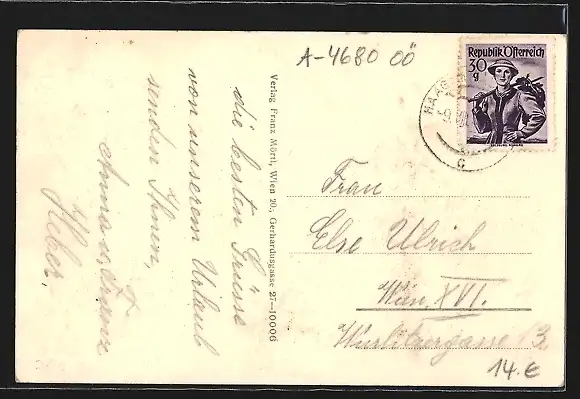 A-4680 OÖ
Republik Österreich
30
g
HAAG
C
Verlag Franz Mörtl, Wien 20., Gerhardusgasse 27—10006
die besten Grüsse
von unserem Urlaub
senden Ihnen,
Frau
Else Ulrich
Wien, XVI.
Wurlitzergasse 3
14.€